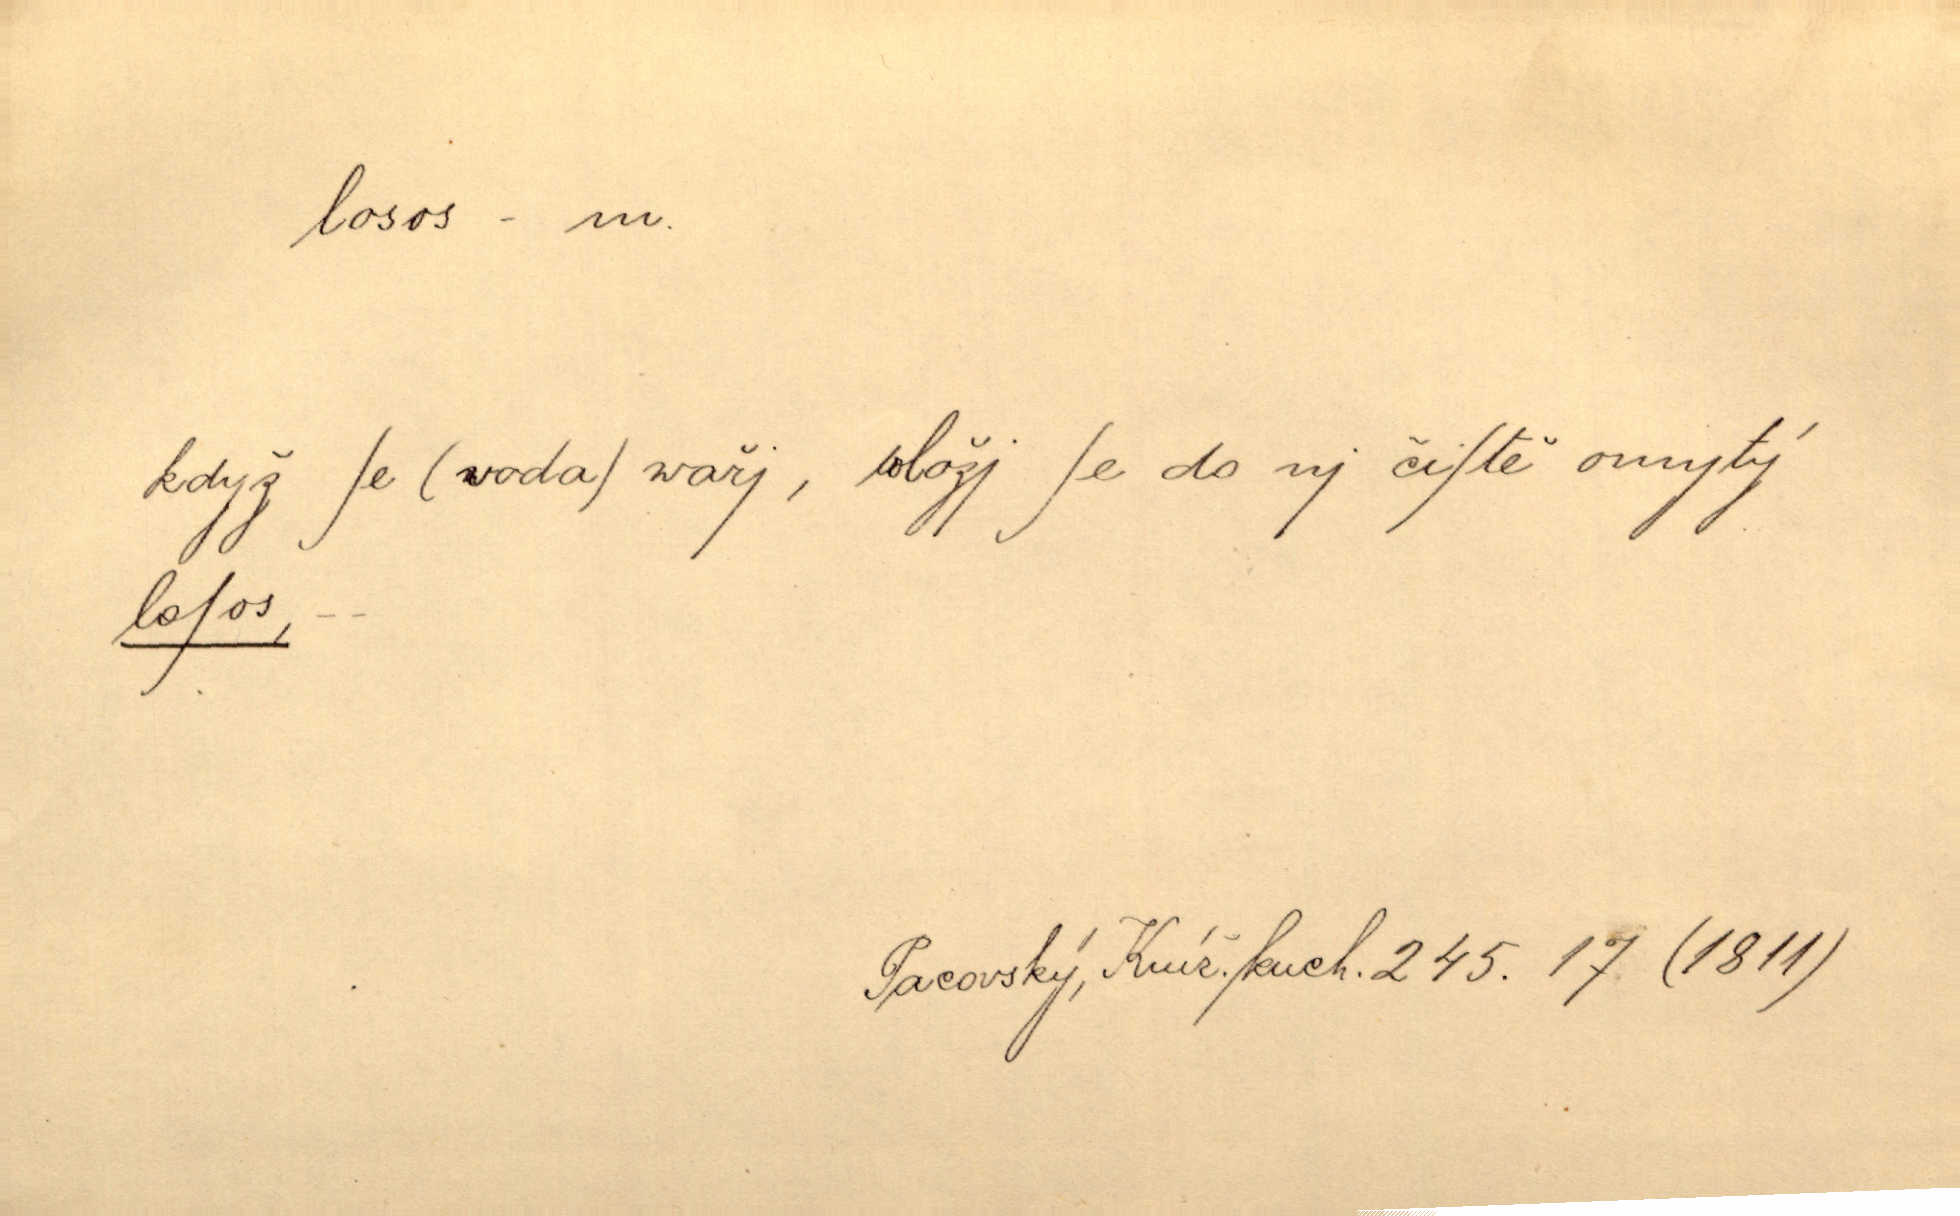 losos - m.
když ſe (woda) wařj, wložj ſe do nj čiſtě omytý
loſos, --
Pacovský, Kniž. kuch. 245. 17 (1811)